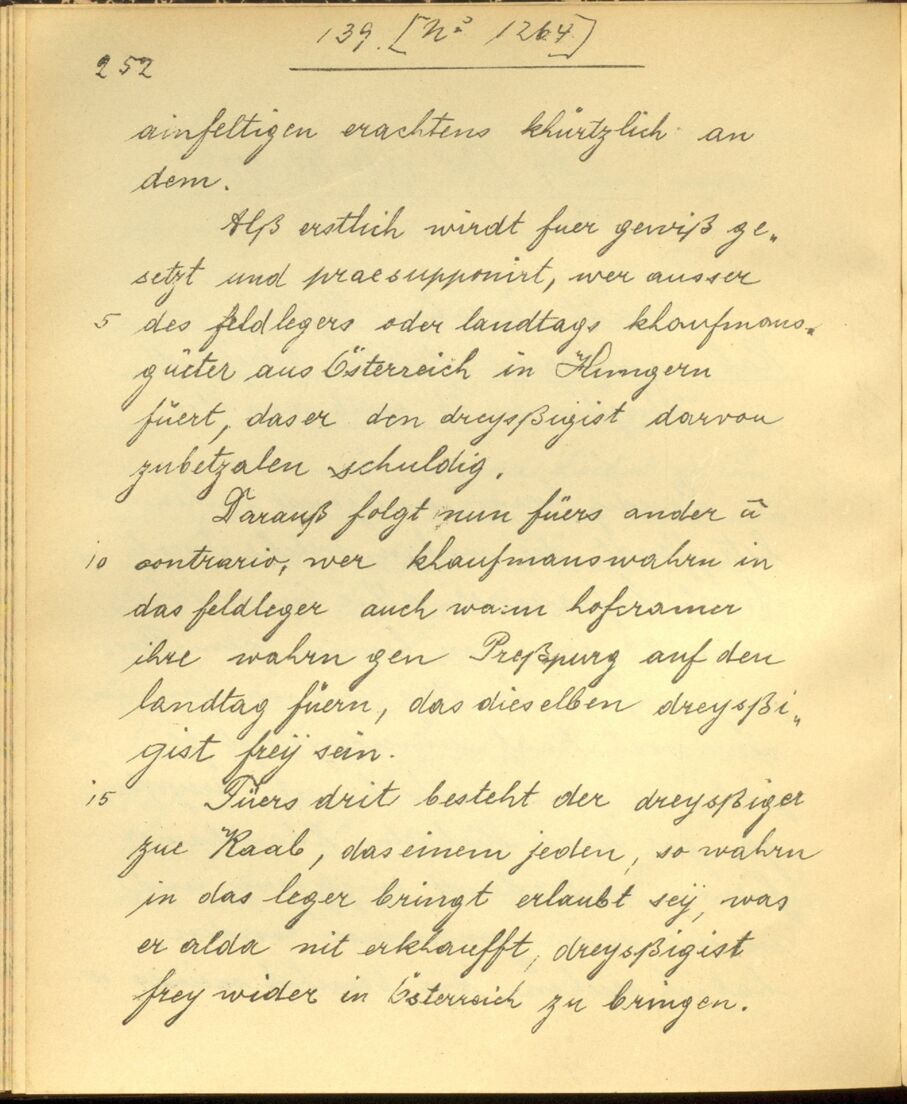 139. [No 1264]
252
ainfeltigen erachtens khürtzlich an
dem.
Alß erstlich wirdt fuer gewiß ge„
setzt und praesupponirt, wer ausser
5 des feldlegers oder landtags khaufmans„
güeter aus Österreich in Hungern
füert, das er den dreysßigist darvon
zubetzalen schuldig.
Darauß folgt nun füers ander ū
10 contrario, wer khaufmanswahrn in
das feldleger auch wann hofcramer
ihre wahrn gen Preßpurg auf den
landtag füern, das dieselben dreysßi„
gist freÿ sein.
15 Füers drit besteht der dreysßiger
zue Raab, das einem jeden, so wahrn
in das leger bringt erlaubt seÿ, was
er alda nit erkhaufft, dreysßigist
frey wider in Österreich zu bringen.